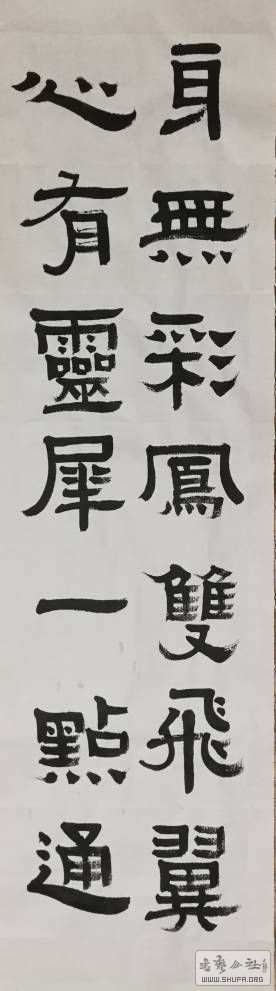 身無彩鳳雙飛翼
心有靈犀一點通
WWW.SHUFA.ORG